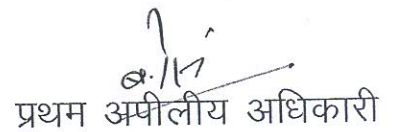 प्रथम अपीलीय अधिकारी